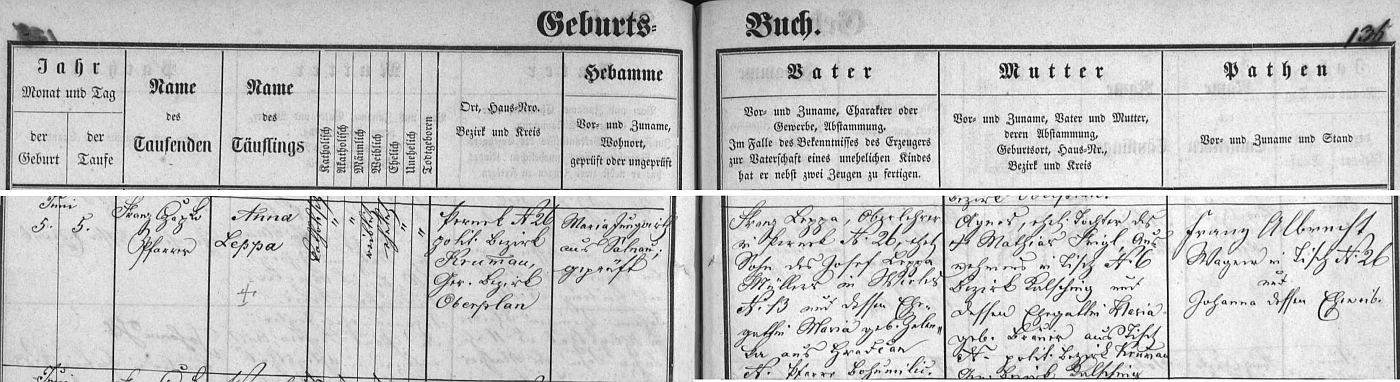 Geburts-
Buch.
136
Jahr
Monat und Tag
der
Geburt
der
Taufe
Name
des
Taufenden
Name
des
Täuflings
Katholisch
Akatholisch
Männlich
Weiblich
Ehelich
Unehelich
Todtgeboren
Ort, Haus-Nro.
Bezirk und Kreis
Hebamme
Vor- und Zuname,
Wohnort,
geprüft oder ungeprüft
Vater
Vor- und Zuname, Charakter oder
Gewerbe, Abstammung.
Im Falle des Bekenntnisses des Erzeugers
zur Vaterschaft eines unehelichen Kindes
hat er nebst zwei Zeugen zu fertigen.
Mutter
Vor- und Zuname, Vater und Mutter,
deren Abstammung,
Geburtsort, Haus-Nr.,
Bezirk und Kreis
Pathen
Vor- und Zuname und Stand
Juni
5. 5.
Franz
Pfarrer
Anna
Leppa
katholisch
"
"
weiblich
ehelich
"
"
Pernek N. 26
polit. Bezirk
Krumau,
Ger. Bezirk
Oberplan
Maria
aus Salnau,
geprüft
Franz Leppa, Oberlehrer
v. Pernek N. 26, ehel.
Sohn des Josef Leppa
Müllers in
N. 13 und dessen Ehe-
gattin Maria geb.
aus Hradčan
N. Pfarre
Agnes, ehel. Tochter des
Mathias
v. Tisch N. 6
Bezirk Kalsching und
dessen Ehegattin Maria
geb. aus Tisch
N. polit. Bezirk Krumau
Ger. Bezirk Kalsching
Franz Albrecht
Wagner v. Tisch N. 26
und
Johanna dessen Eheweib.
Juni